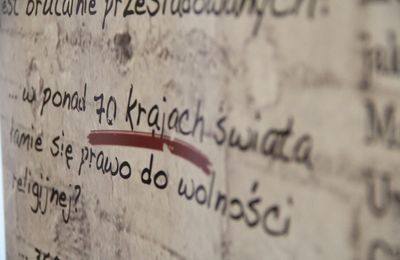 jest brutalnie prześladowanych?
... w ponad 70 krajach świata
łamie się prawo do wolności
religijnej?